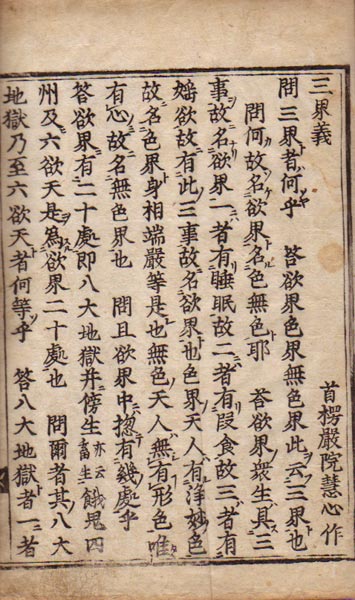 三界義
首楞嚴院慧心作
問三界者何乎　答欲界色界無色界此云三界也
問何故名欲界名色無色耶　荅欲界衆生具三
事故名欲界一者有睡眠故二者有段食故三者有
婬欲故有此三事故名欲界也色界天人有淨妙色
故名色界身相端嚴等是也無色天人無有形色唯
有心故名無色界也　問且欲界中惣有幾處乎
荅欲界有二十處即八大地獄幷傍生亦云畜生餓鬼四
州及六欲天是爲欲界二十處也　問爾者其八大
地獄乃至六欲天者何等乎　荅八大地獄者一者